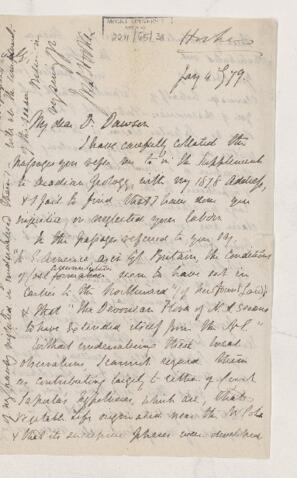 2211/65/38
Jan 4/79.
My dear Dr Dawson
I have carefully collated the
passages you refer me to in the Supplement
to Acadian Geology, with my 1878 Address,
& I fail to find that I have done you
injustice or neglected your labors
In the passage referred to you say
"In E. America, as in Gt. Britain, the conditions
of coal accumulation seem to have set in
earlier to the Northward"
& that "the Devonian Flora of
to have extended itself from the N.E."
Without undervaluing these local
observations I cannot regard them
as contributing largely to either of Count
Saporta's hypotheses, which are, that
vegetable life originated near the N. Pole
& that its successive phases were developed